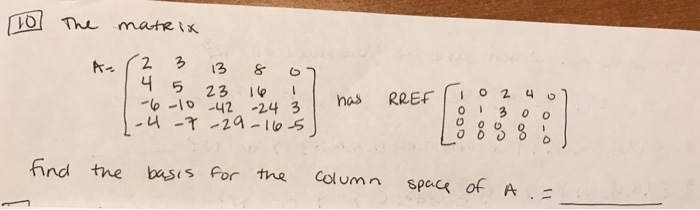 10 The matrix
A= [ 2 3 13 8 0
4 5 23 16 1
-6 -10 -42 -24 3
-4 -7 -29 -16 -5 ]
has RREF [ 1 0 2 4 0
0 1 3 0 0
0 0 0 0 1
0 0 0 0 0 ]
find the basis for the column space of A. = ________